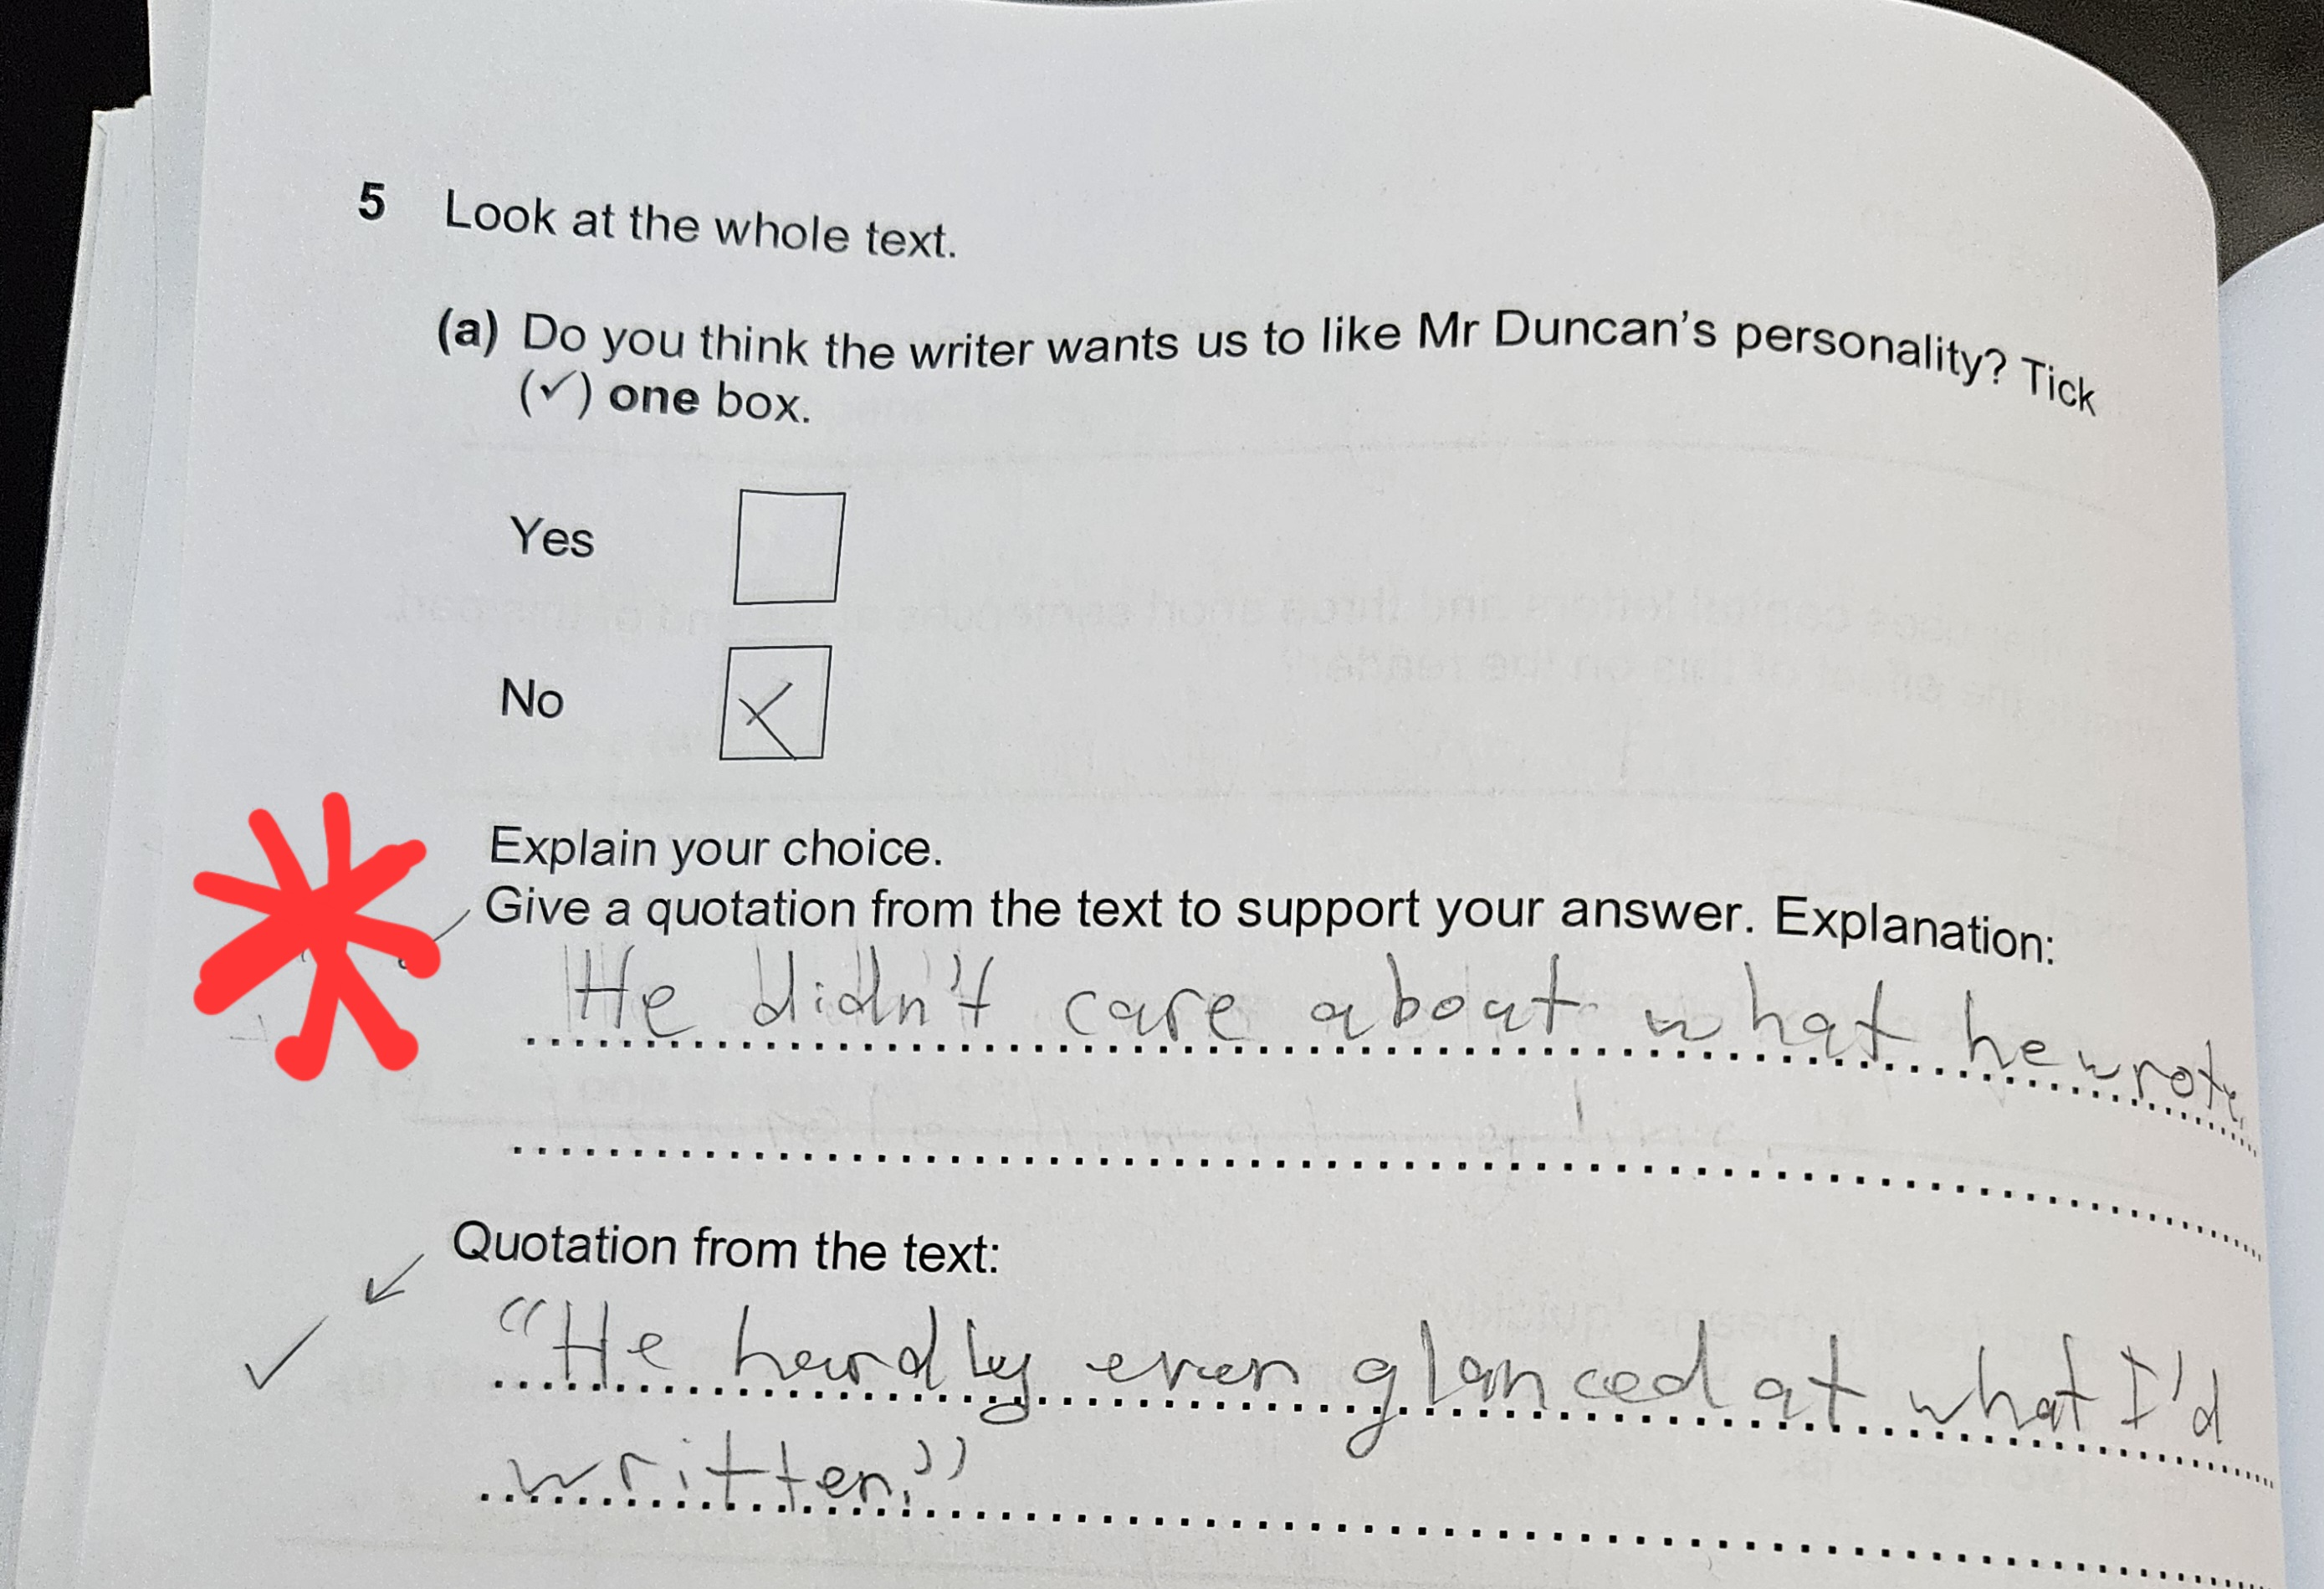 5 Look at the whole text.
(a) Do you think the writer wants us to like Mr Duncan's personality? Tick
(✓) one box.
Yes
No
Explain your choice.
Give a quotation from the text to support your answer. Explanation:
He didn't care about what he wrote.
Quotation from the text:
"He hardly even glanced at what I'd
written."